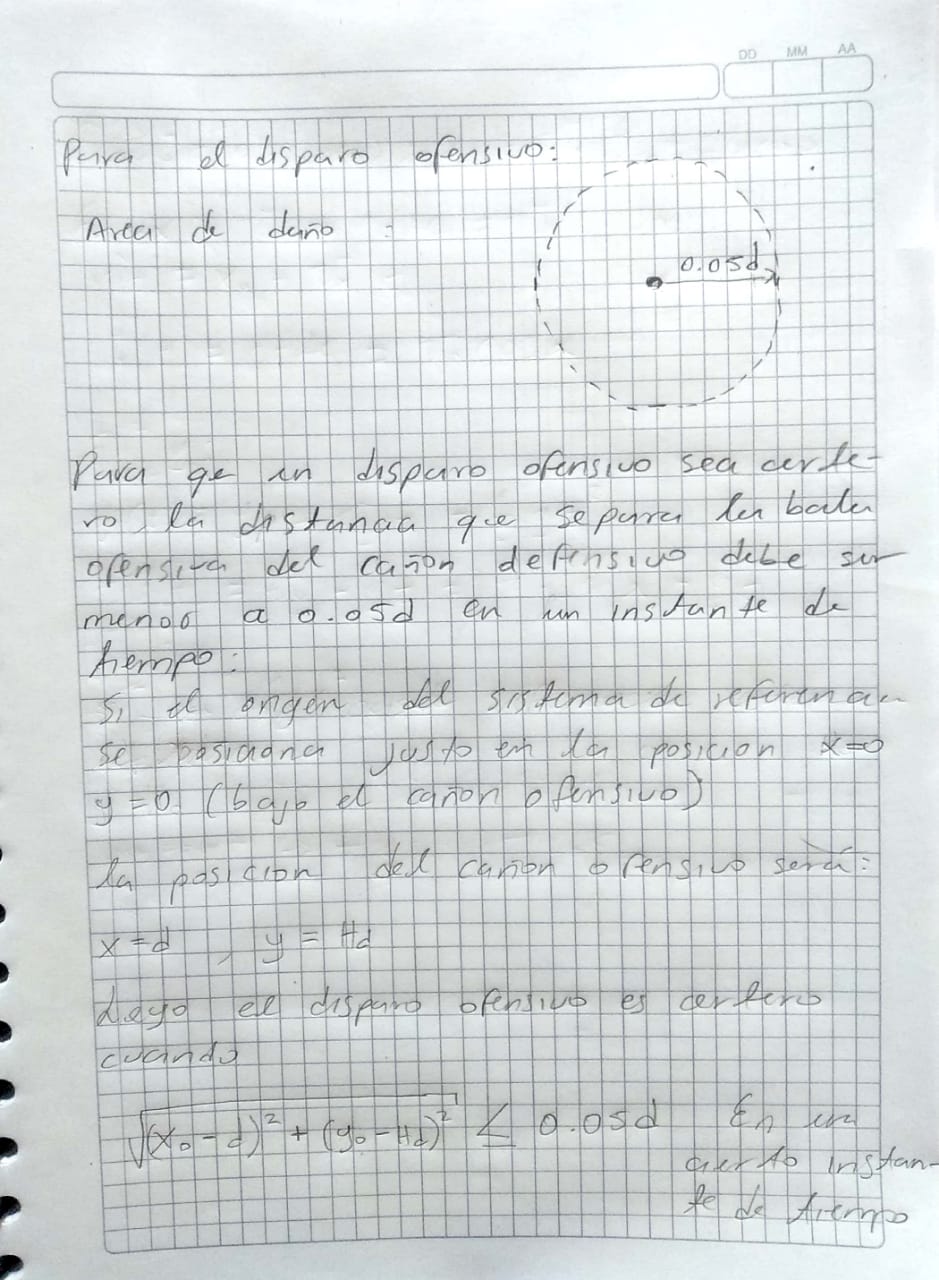 DD MM AA
Para el disparo ofensivo:
Area de daño :
0.05d
Para qe un disparo ofensivo sea certe-
ro la distancia que separa la bala
ofensiva del cañon defensivo debe ser
menor a 0.05d en un instante de
tiempo:
Si el origen del sistema de referencia
se posiciona justo en la posicion x=0
y=0 (bajo el cañon ofensivo)
la posicion del cañon ofensivo será:
x=d , y = Hd
Luego el disparo ofensivo es certero
cuando
√(x₀-d)² + (y₀-Hd)² ≤ 0.05d En un
cierto instan-
te de tiempo